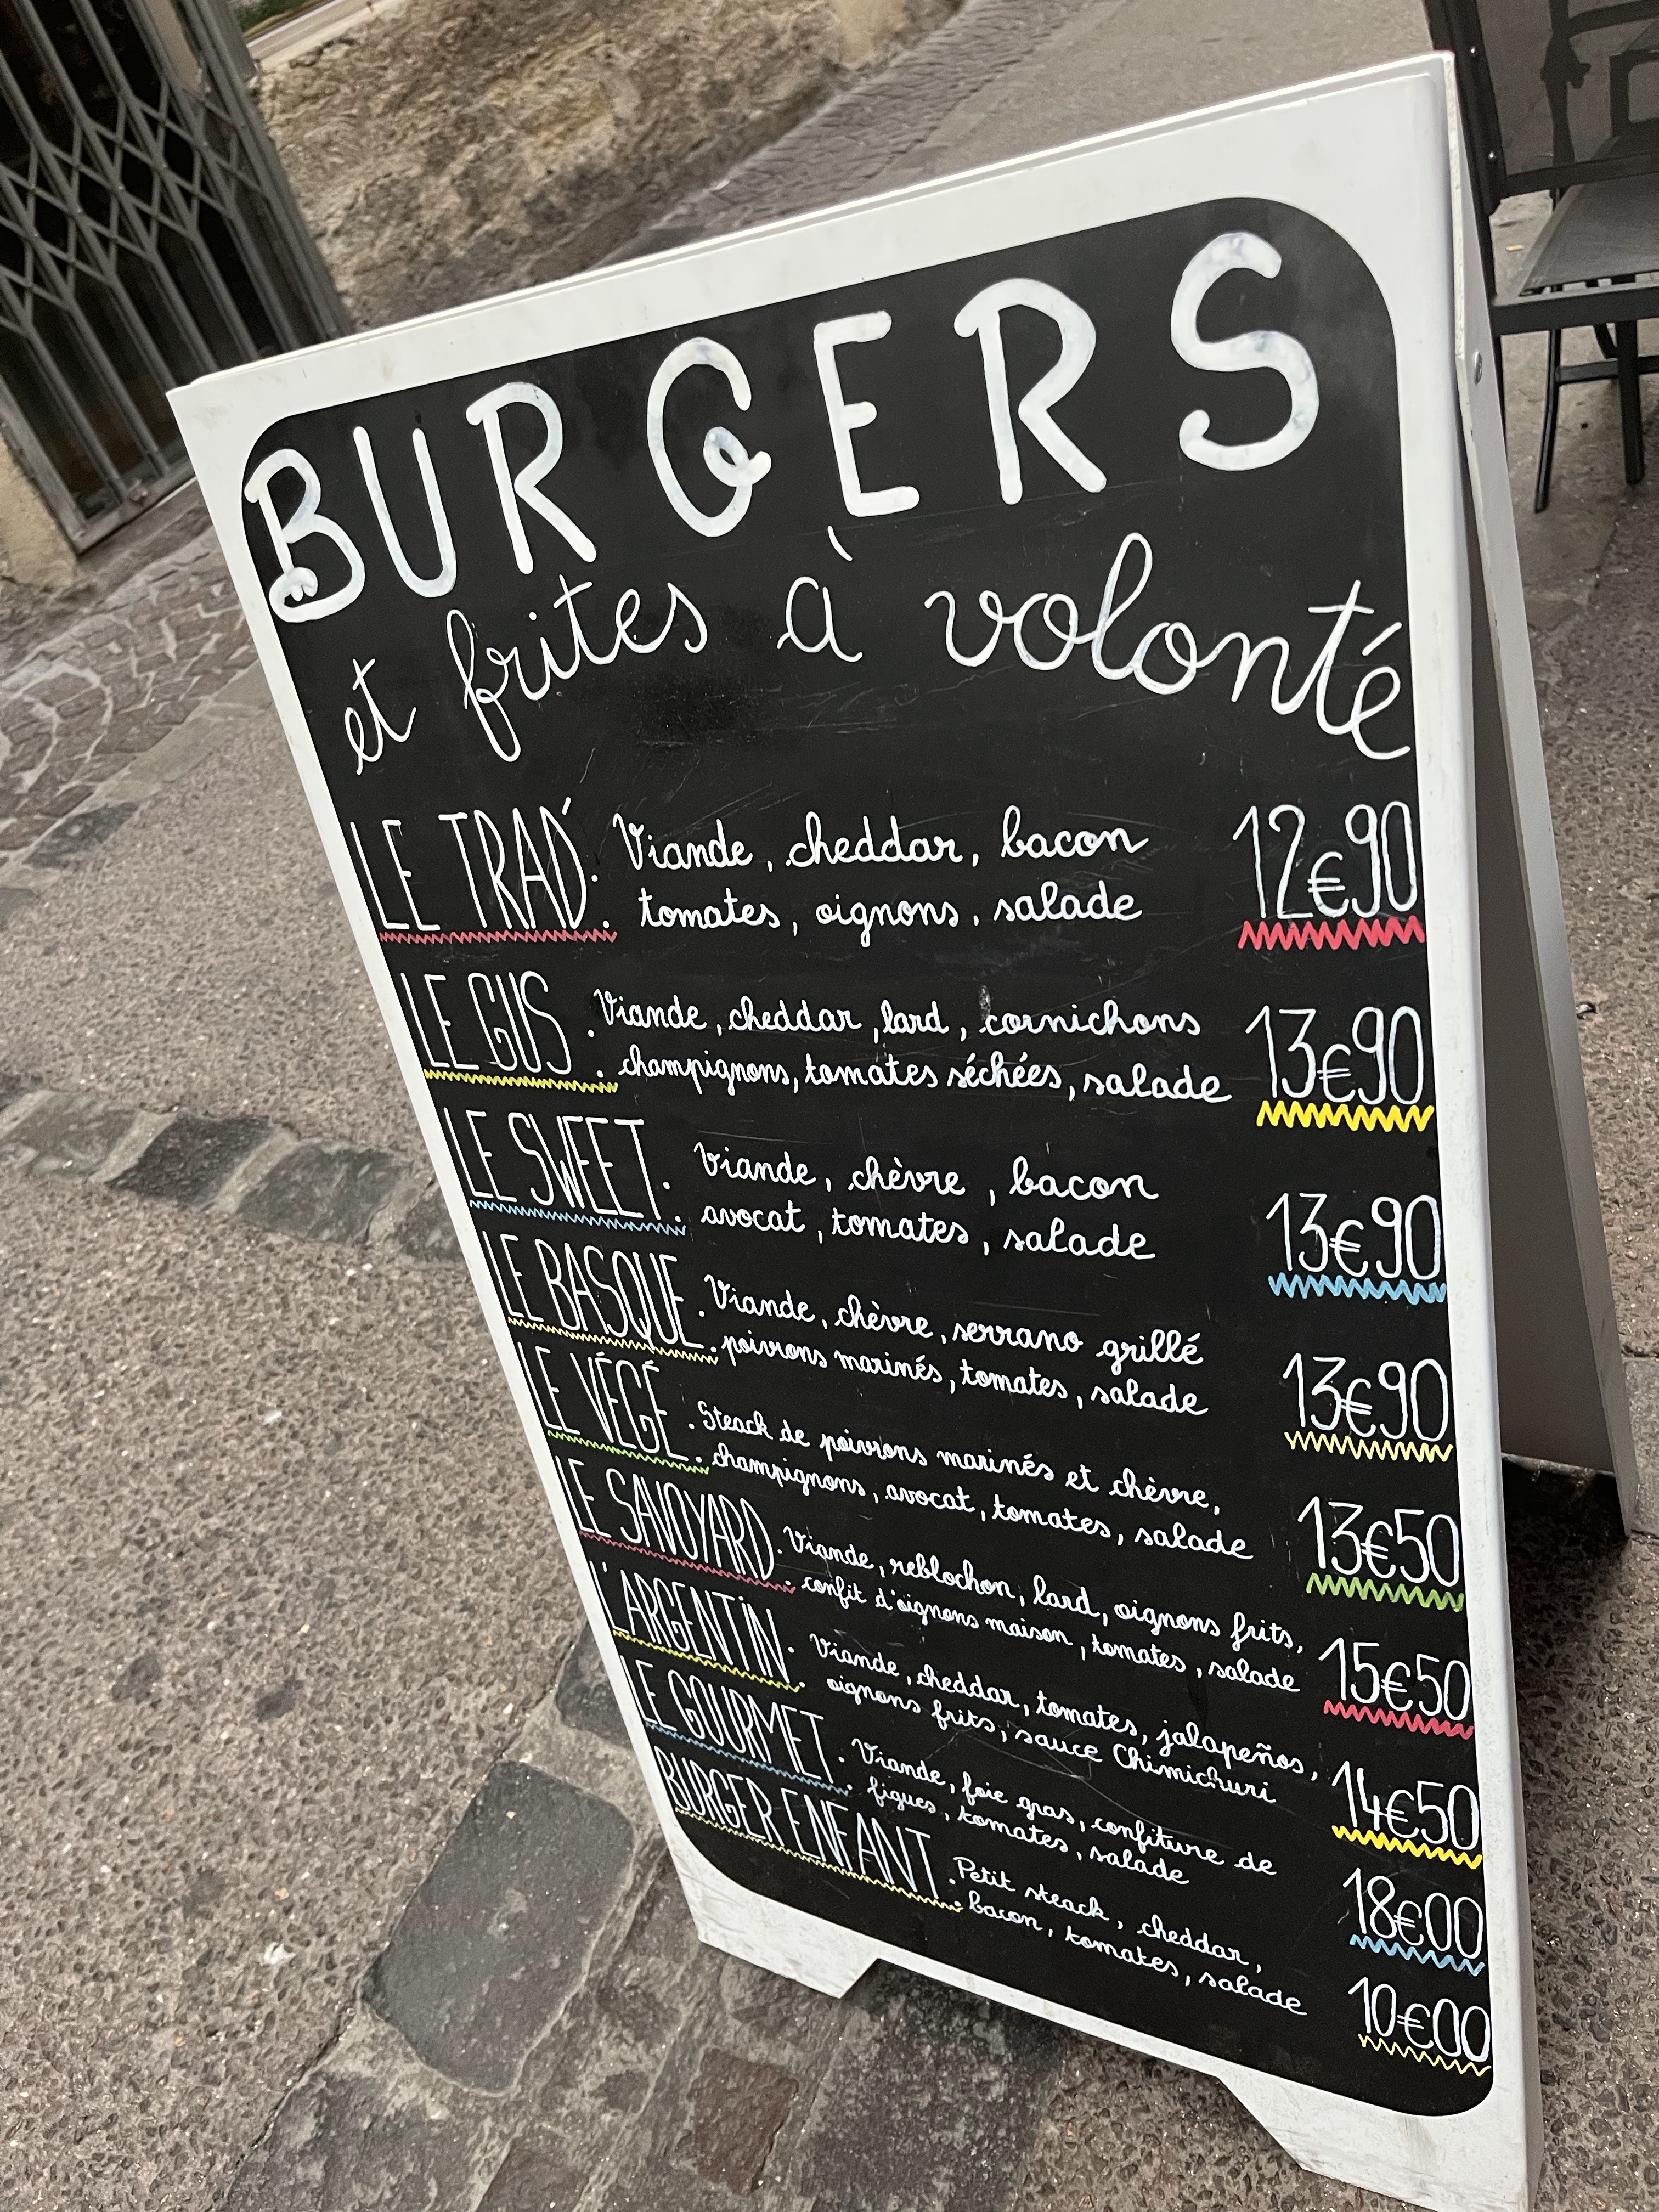 BURGERS
et frites à volonté
LE TRAD': Viande, cheddar, bacon 12€90
tomates, oignons, salade
LE GUS: Viande, cheddar, lard, cornichons 13€90
champignons, tomates séchées, salade
LE SWEET: Viande, chèvre, bacon 13€90
avocat, tomates, salade
LE BASQUE: Viande, chèvre, serrano grillé 13€90
poivrons marinés, tomates, salade
LE VÉGÉ: Steack de poivrons marinés et chèvre, 13€50
champignons, avocat, tomates, salade
LE SAVOYARD: Viande, reblochon, lard, oignons frits, 15€50
confit d'oignons maison, tomates, salade
L'ARGENTIN: Viande, cheddar, tomates, jalapeños, 14€50
oignons frits, sauce Chimichuri
LE GOURMET: Viande, foie gras, confiture de 18€00
figues, tomates, salade
BURGER ENFANT: Petit steack, cheddar, 10€00
bacon, tomates, salade